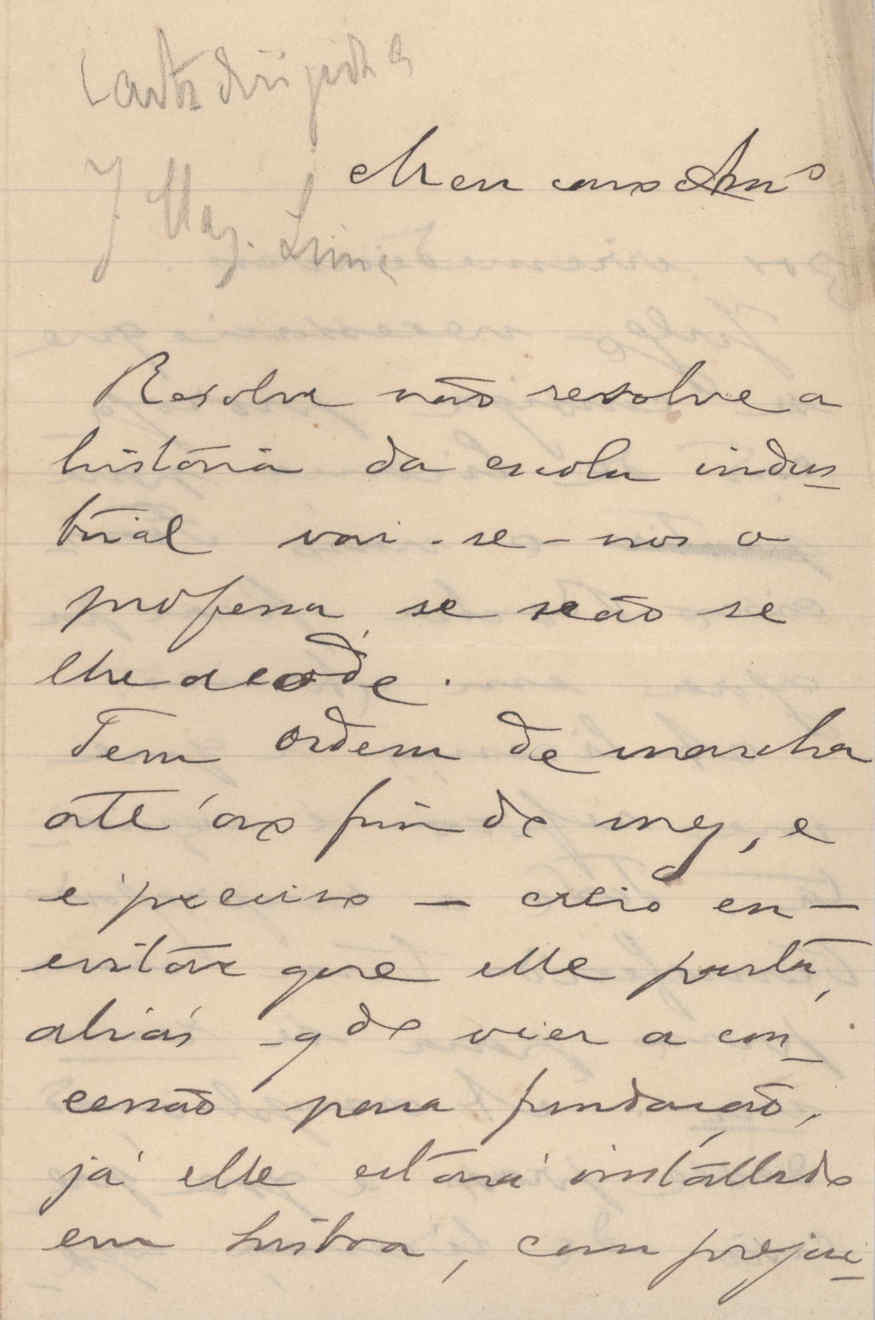 Carta dirigida a
J Mag. Lima
Meu caro Amº
Resolve não resolve a
história da escola indus-
trial vai-se-nos o
professor, se não se
lhe acode.
Tem ordem de marcha
até ao fim do mez, e
é preciso — creio eu —
evitar que elle parta,
aliás - qdo vier a con-
cessão para fundação,
já elle estará installado
em Lisboa, com prejui-